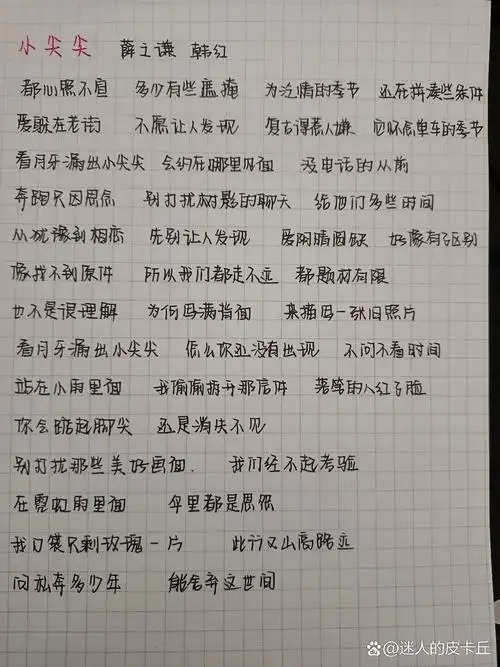 小尖尖 薛之谦 韩红
都心照不宣 多少有些遮掩 为沧情的季节 还在拼凑些条件
爱躲在老街 不愿让人发现 复古得惹人嫌 它怀念单车的季节
看月牙漏出小尖尖 会约在哪里见面 没电话的从前
奔跑只因思念 别打扰树影的聊天 给他们多些时间
从犹豫到相恋 先别让人发现 爱阴晴圆缺 好像有了区别
像找不到原件 所以我们都走不远 都题材有限
也不是很理解 为何吗满背面 来描吗一张旧照片
看月牙漏出小尖尖 怎么你还没有出现 不问不看时间
站在小雨里面 我偷偷拆开那信件 落笔的人红了脸
你会踮起脚尖 还是消失不见
别打扰那些美好画面. 我们经不起考验
在霓虹雨里面 伞里都是思念
我口袋只剩玫瑰一片 此行又山高路远
问私奔多少年 能舍弃这世间
迷人的皮卡丘